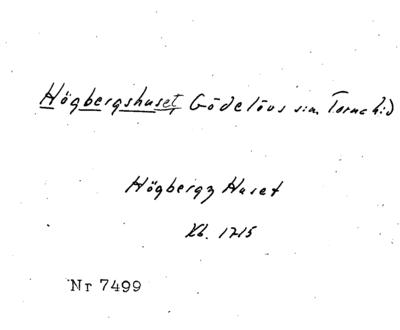 Högbergshuset, Gödelövs sn, Torna hd
Högbergz Huset
Kb. 1715
Nr 7499